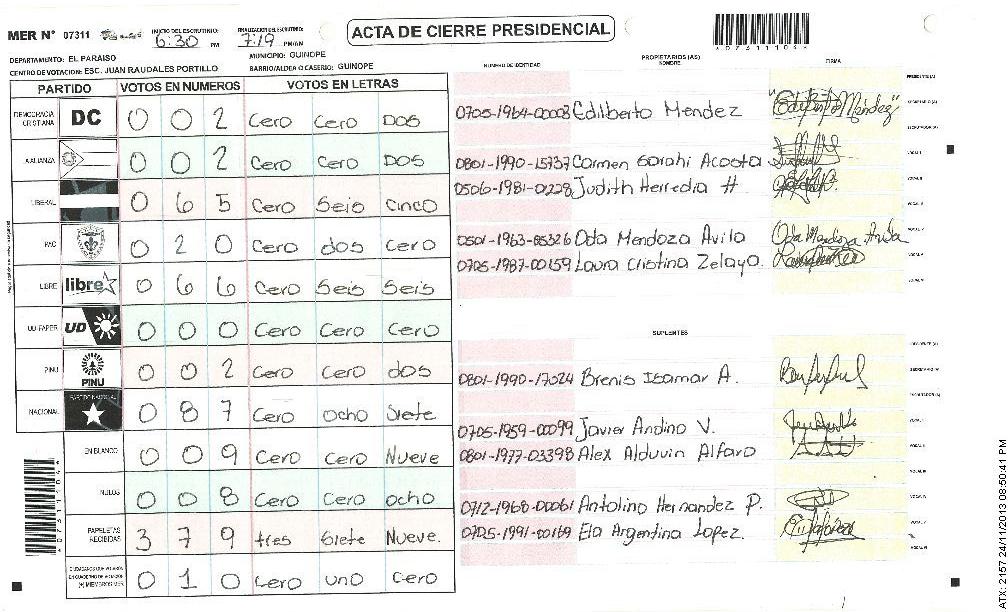 MER N° 07311
INICIO DEL ESCRUTINIO: 6:30 PM
FINALIZACIÓN DEL ESCRUTINIO: 7:19 PM/AM
ACTA DE CIERRE PRESIDENCIAL
0731110
DEPARTAMENTO: EL PARAISO
MUNICIPIO: GUINOPE
CENTRO DE VOTACION: ESC. JUAN RAUDALES PORTILLO
BARRIO/ALDEA O CASERIO: GUINOPE
PARTIDO VOTOS EN NUMEROS VOTOS EN LETRAS
DEMOCRACIA CRISTIANA DC 0 0 2 Cero Cero Dos
ALIANZA 0 0 2 Cero Cero Dos
LIBERAL 0 6 5 Cero Seis Cinco
PAC 0 2 0 Cero dos Cero
LIBRE libre 0 6 6 Cero Seis Seis
UD-FAPER UD 0 0 0 Cero Cero Cero
PINU PINU 0 0 2 Cero Cero dos
NACIONAL PARTIDO NACIONAL 0 8 7 Cero ocho Siete
EN BLANCO 0 0 9 Cero Cero Nueve
NULOS 0 0 8 Cero Cero ocho
PAPELETAS RECIBIDAS 3 7 9 tres Siete Nueve.
CIUDADANOS QUE VOTARON EN CUADERNO DE VOTACION (+) MIEMBROS MER 0 1 0 Cero uno Cero
NUMERO DE IDENTIDAD PROPIETARIOS (AS) NOMBRE FIRMA
PRESIDENTE (A)
0705-1964-00008 Edilberto Mendez SECRETARIO (A)
ESCRUTADOR (A)
0801-1990-15737 Carmen Sarahi Acosta VOCAL I
0506-1981-0228 Judith Herredia H VOCAL II
VOCAL III
0501-1963-05326 Oda Mendoza Avila Oda Mendoza Avila VOCAL IV
0705-1987-00159 Laura Cristina Zelaya. VOCAL V
VOCAL VI
SUPLENTES
PRESIDENTE (A)
0801-1990-17024 Brenis Isamar A. SECRETARIO (A)
ESCRUTADOR (A)
0705-1959-00099 Javier Andino V. VOCAL I
0801-1977-03398 Alex Alduvin Alfaro VOCAL II
VOCAL III
0712-1968-00061 Antolino Hernandez P. VOCAL IV
0705-1991-00169 Ela Argentina Lopez. VOCAL V
VOCAL VI
ATX: 2157 24/11/2013 08:50:41 PM